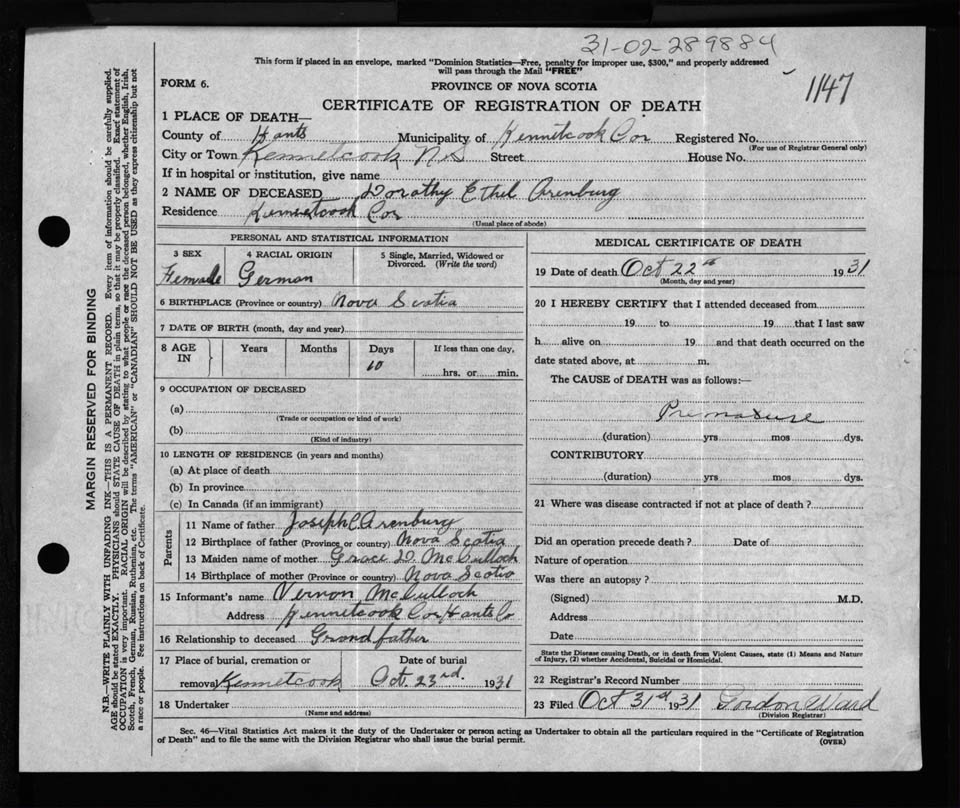 31-02-289884
This form if placed in an envelope, marked "Dominion Statistics—Free, penalty for improper use, $300," and properly addressed
will pass through the Mail "FREE"
1147
FORM 6.
PROVINCE OF NOVA SCOTIA
CERTIFICATE OF REGISTRATION OF DEATH
1 PLACE OF DEATH—
County of Hants Municipality of Kennetcook Cor Registered No.
(For use of Registrar General only)
City or Town Kennetcook N S Street House No.
If in hospital or institution, give name
2 NAME OF DECEASED Dorothy Ethel Arenburg
Residence Kennetcook Cor
(Usual place of abode)
PERSONAL AND STATISTICAL INFORMATION
3 SEX 4 RACIAL ORIGIN 5 Single, Married, Widowed or
Divorced. (Write the word)
Female German
6 BIRTHPLACE (Province or country) Nova Scotia
7 DATE OF BIRTH (month, day and year)
8 AGE IN Years Months Days If less than one day,
10
hrs. or min.
9 OCCUPATION OF DECEASED
(a)
(Trade or occupation or kind of work)
(b)
(Kind of industry)
10 LENGTH OF RESIDENCE (in years and months)
(a) At place of death
(b) In province
(c) In Canada (if an immigrant)
Parents
11 Name of father Joseph C Arenburg
12 Birthplace of father (Province or country) Nova Scotia
13 Maiden name of mother Grace D. McCulloch
14 Birthplace of mother (Province or country) Nova Scotia
15 Informant's name Vernon McCulloch
Address Kennetcook Cor Hants Co
16 Relationship to deceased Grandfather
17 Place of burial, cremation or Date of burial
removal Kennetcook Oct. 23rd. 1931
18 Undertaker
(Name and address)
MEDICAL CERTIFICATE OF DEATH
19 Date of death Oct 22th 1931
(Month, day and year)
20 I HEREBY CERTIFY that I attended deceased from
19 to 19 that I last saw
h alive on 19 and that death occurred on the
date stated above, at m.
The CAUSE of DEATH was as follows:—
Premature
(duration) yrs mos dys.
CONTRIBUTORY
(duration) yrs mos dys.
21 Where was disease contracted if not at place of death?
Did an operation precede death? Date of
Nature of operation
Was there an autopsy?
(Signed) M.D.
Address
Date
State the Disease causing Death, or in death from Violent Causes, state (1) Means and Nature
of Injury, (2) whether Accidental, Suicidal or Homicidal.
22 Registrar's Record Number
23 Filed Oct 31st 1931 Gordon Ward
(Division Registrar)
Sec. 46—Vital Statistics Act makes it the duty of the Undertaker or person acting as Undertaker to obtain all the particulars required in the "Certificate of Registration
of Death" and to file the same with the Division Registrar who shall issue the burial permit.
(OVER)
MARGIN RESERVED FOR BINDING
N.B.—WRITE PLAINLY WITH UNFADING INK—THIS IS A PERMANENT RECORD. Every item of information should be carefully supplied.
AGE should be stated EXACTLY. PHYSICIANS should STATE CAUSE OF DEATH in plain terms, so that it may be properly classified. Exact statement of
OCCUPATION is very important. RACIAL ORIGIN will be described by stating to what people or race the deceased person belonged, whether English, Irish,
Scotch, French, German, Russian, Ruthenian, etc. The terms "AMERICAN" or "CANADIAN" SHOULD NOT BE USED as they express citizenship but not
a race or people. See instructions on back of Certificate.